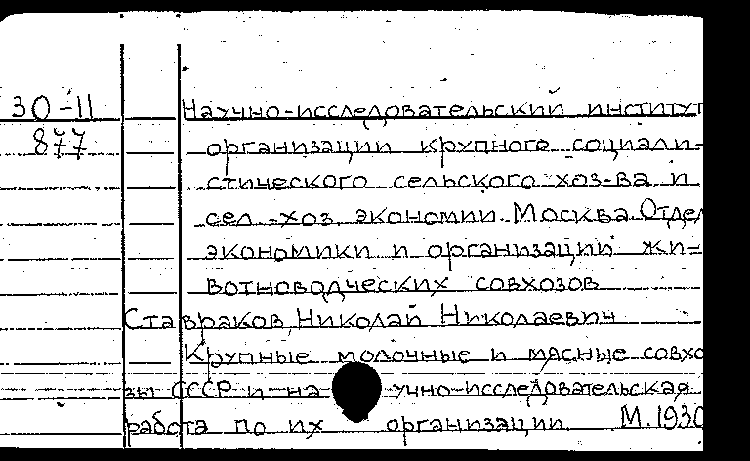 30-11 Научно-исследовательский институт
877 организации крупного социали-
стического сельского хоз-ва и
сел.-хоз. экономии. Москва. Отдел
экономики и организации жи-
вотноводческих совхозов
Ставраков, Николай Николаевич
Крупные молочные и мясные совхо
зы СССР и на учно-исследовательская
работа по их организации М.1930